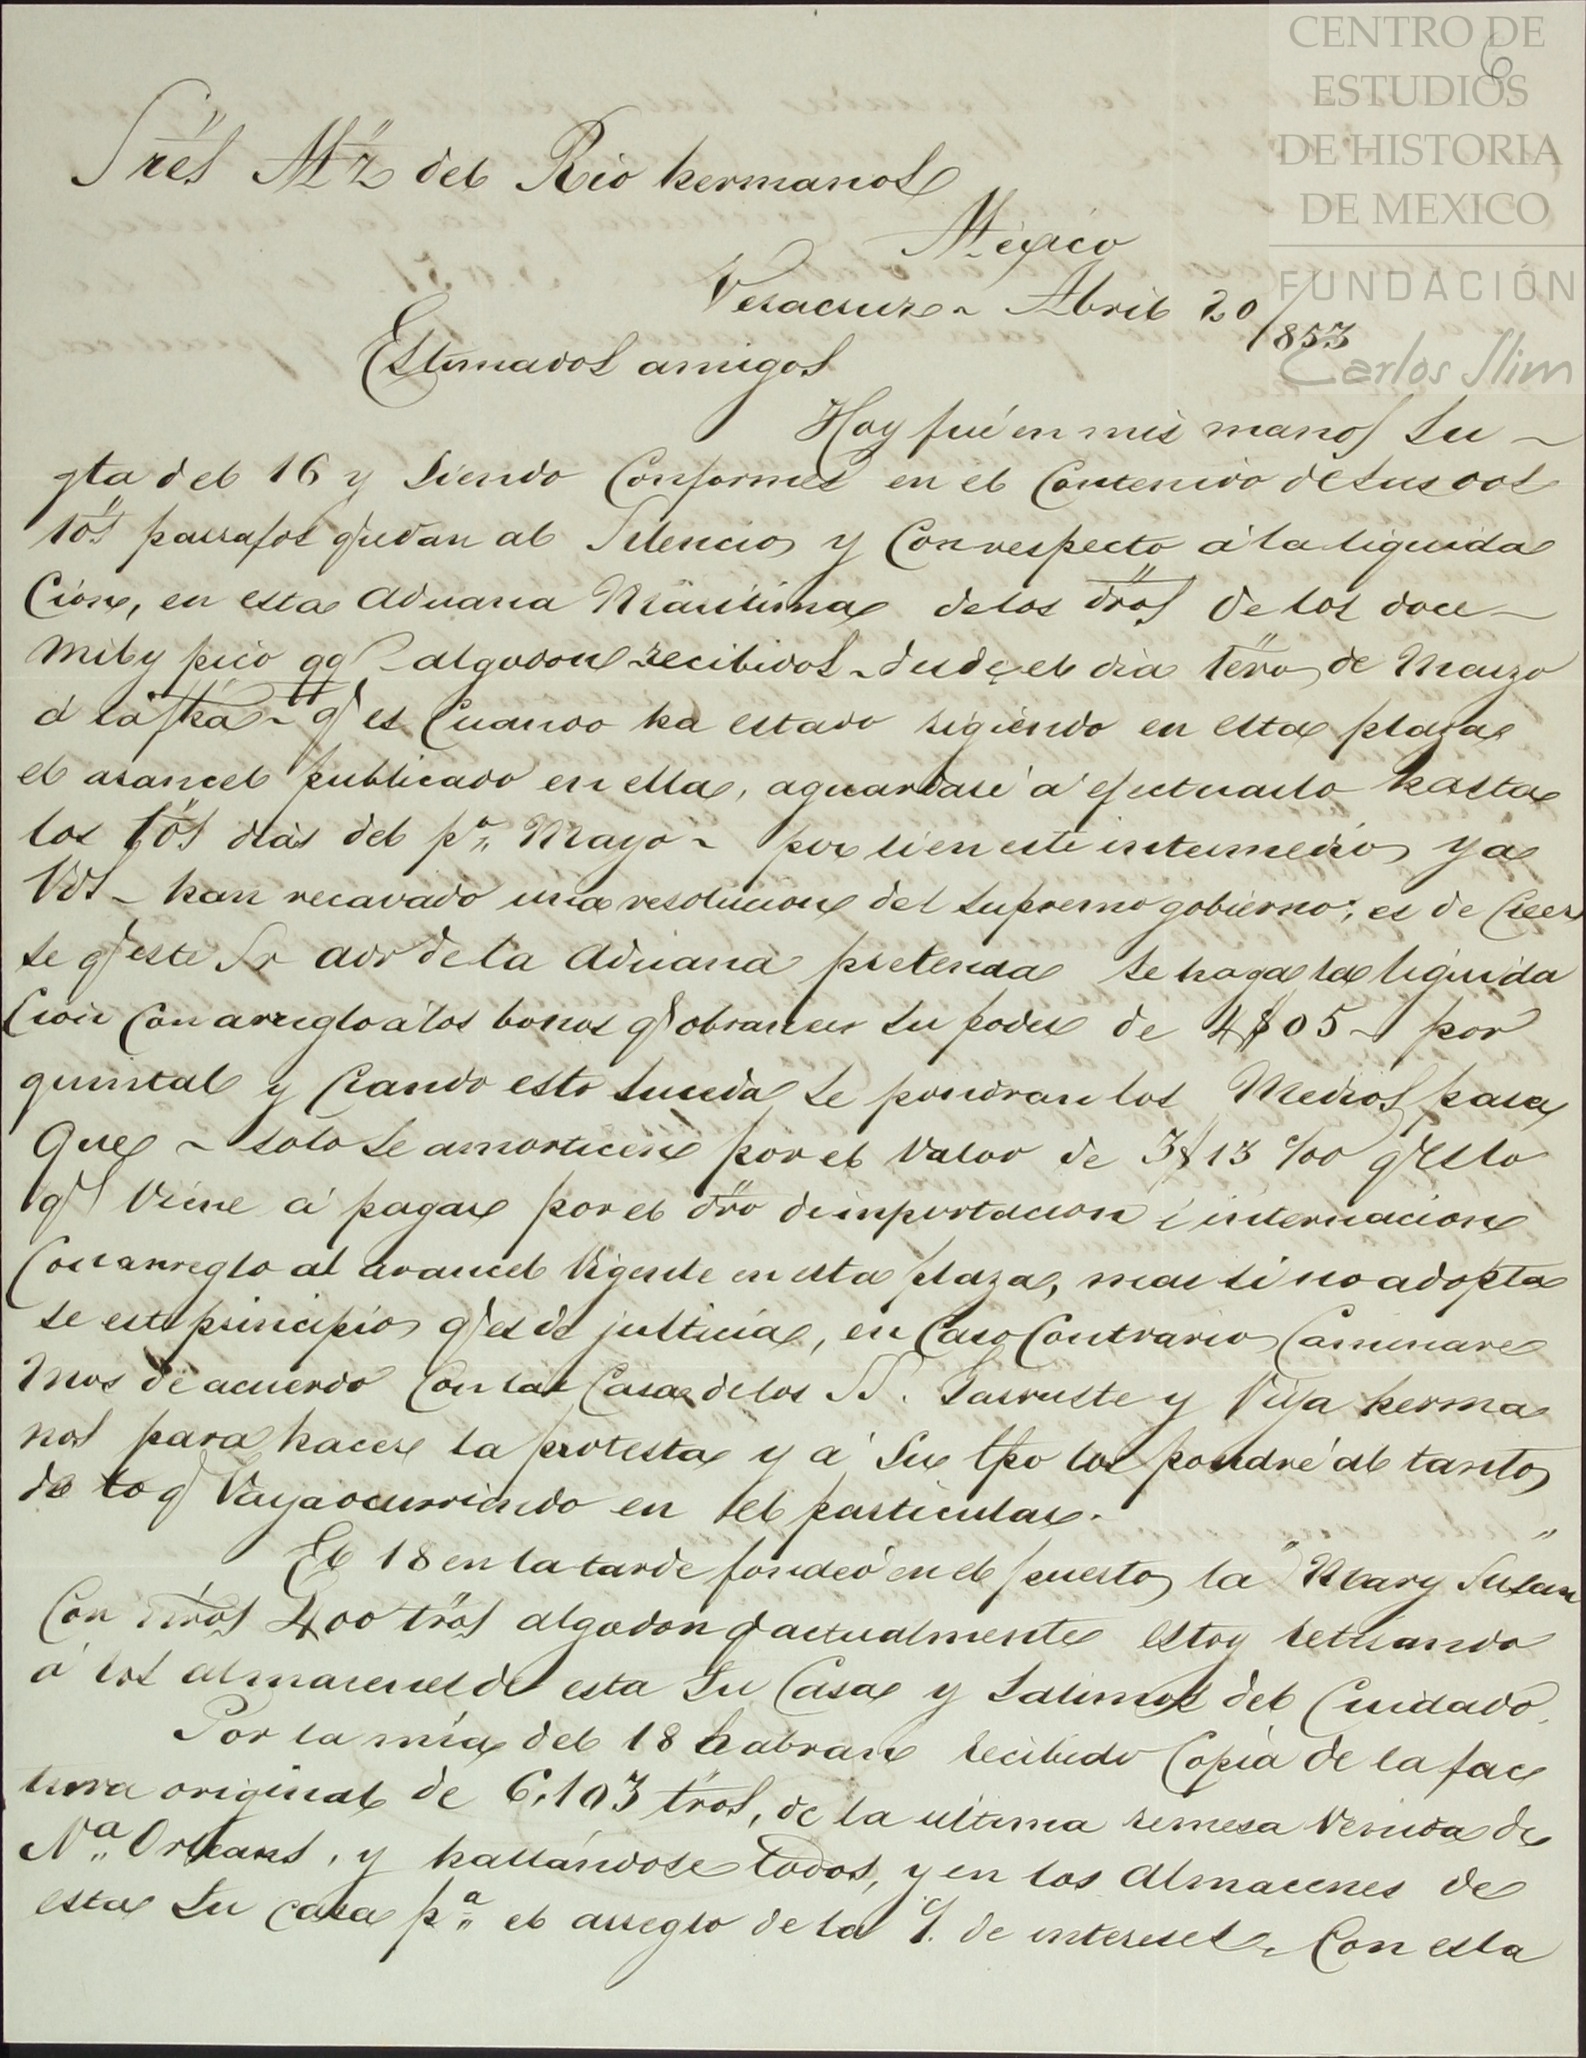 CENTRO DE
ESTUDIOS
DE HISTORIA
DE MEXICO
FUNDACIÓN
Carlos Slim
6
Sres Mz del Rio hermanos
México
Veracruz - Abril 20/853
Estimados amigos
Hoy fué en mis manos su
gta del 16 y siendo conformes en el contenido de sus dos
1os parrafos quedan al silencio y con respecto á la liquida
cion, en esta Aduana Maritima de los dros de los doce
mil y pico qq algodon recibidos desde el dia 1ero de Marzo
á la fha q es cuando ha estado rigiendo en esta plaza
el arancel publicado en ella, aguardaré á efectuarlo hasta
los 1os dias del pº Mayo - por si en este intermedio ya
Vds - han recavado una resolucion del supremo gobierno; es de creer
se q este Sr ador de la Aduana pretenda se haga la liquida
cion con arreglo á los bonos q obran en su poder de 4$05 - por
quintal y cuando esto suceda se pondran los Medios para
que - solo se amorticen por el valor de 3$13 c/oo q es lo
q viene á pagar por el dro de importacion é internacion
con arreglo al arancel vigente en esta plaza, mas si no adopta
se este principio q es de justicia, en caso contrario caminare
mos de acuerdo con la casa de los SS. Larruste y Viya herma
nos para hacer la protesta y á su tpo los pondré al tanto
de lo q vaya ocurriendo en el particular.
El 18 en la tarde fondeó en el puerto la "Mary Susan"
con ntros 400 tros algodon q actualmente estoy retirando
á los almacenes de esta su casa y salimos del cuidado.
Por la mia del 18 habran recibido copia de la fac
tura original de 6,103 tros, de la ultima remesa venida de
Nª Orleans, y hallándose todos, y en los almacenes de
esta su casa pª el arreglo de la c/. de intereses, con esta